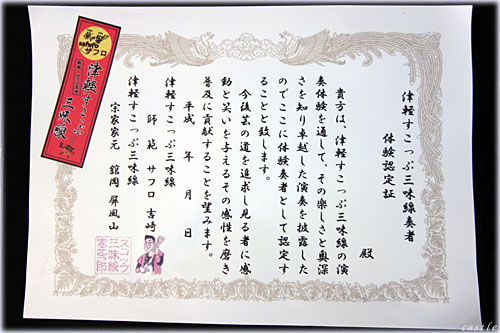 津軽すこっぷ三味線奏者
体験認定証
殿
貴方は、津軽すこっぷ三味線の演
奏体験を通して、その楽しさと奥深
さを知り卓越した演奏を披露した
のでここに体験奏者として認定す
ることと致します。
今後芸の道を追求し見る者に感
動と笑いを与えるその感性を磨き
普及に貢献することを望みます。
平成　年　月　日
津軽すこっぷ三味線
師範　サフロ吉崎
津軽すこっぷ三味線
宗家家元　舘岡屏風山
スコップ
三味線
家元印
safuro
サフロ
津軽すこっぷ
三味線
castle